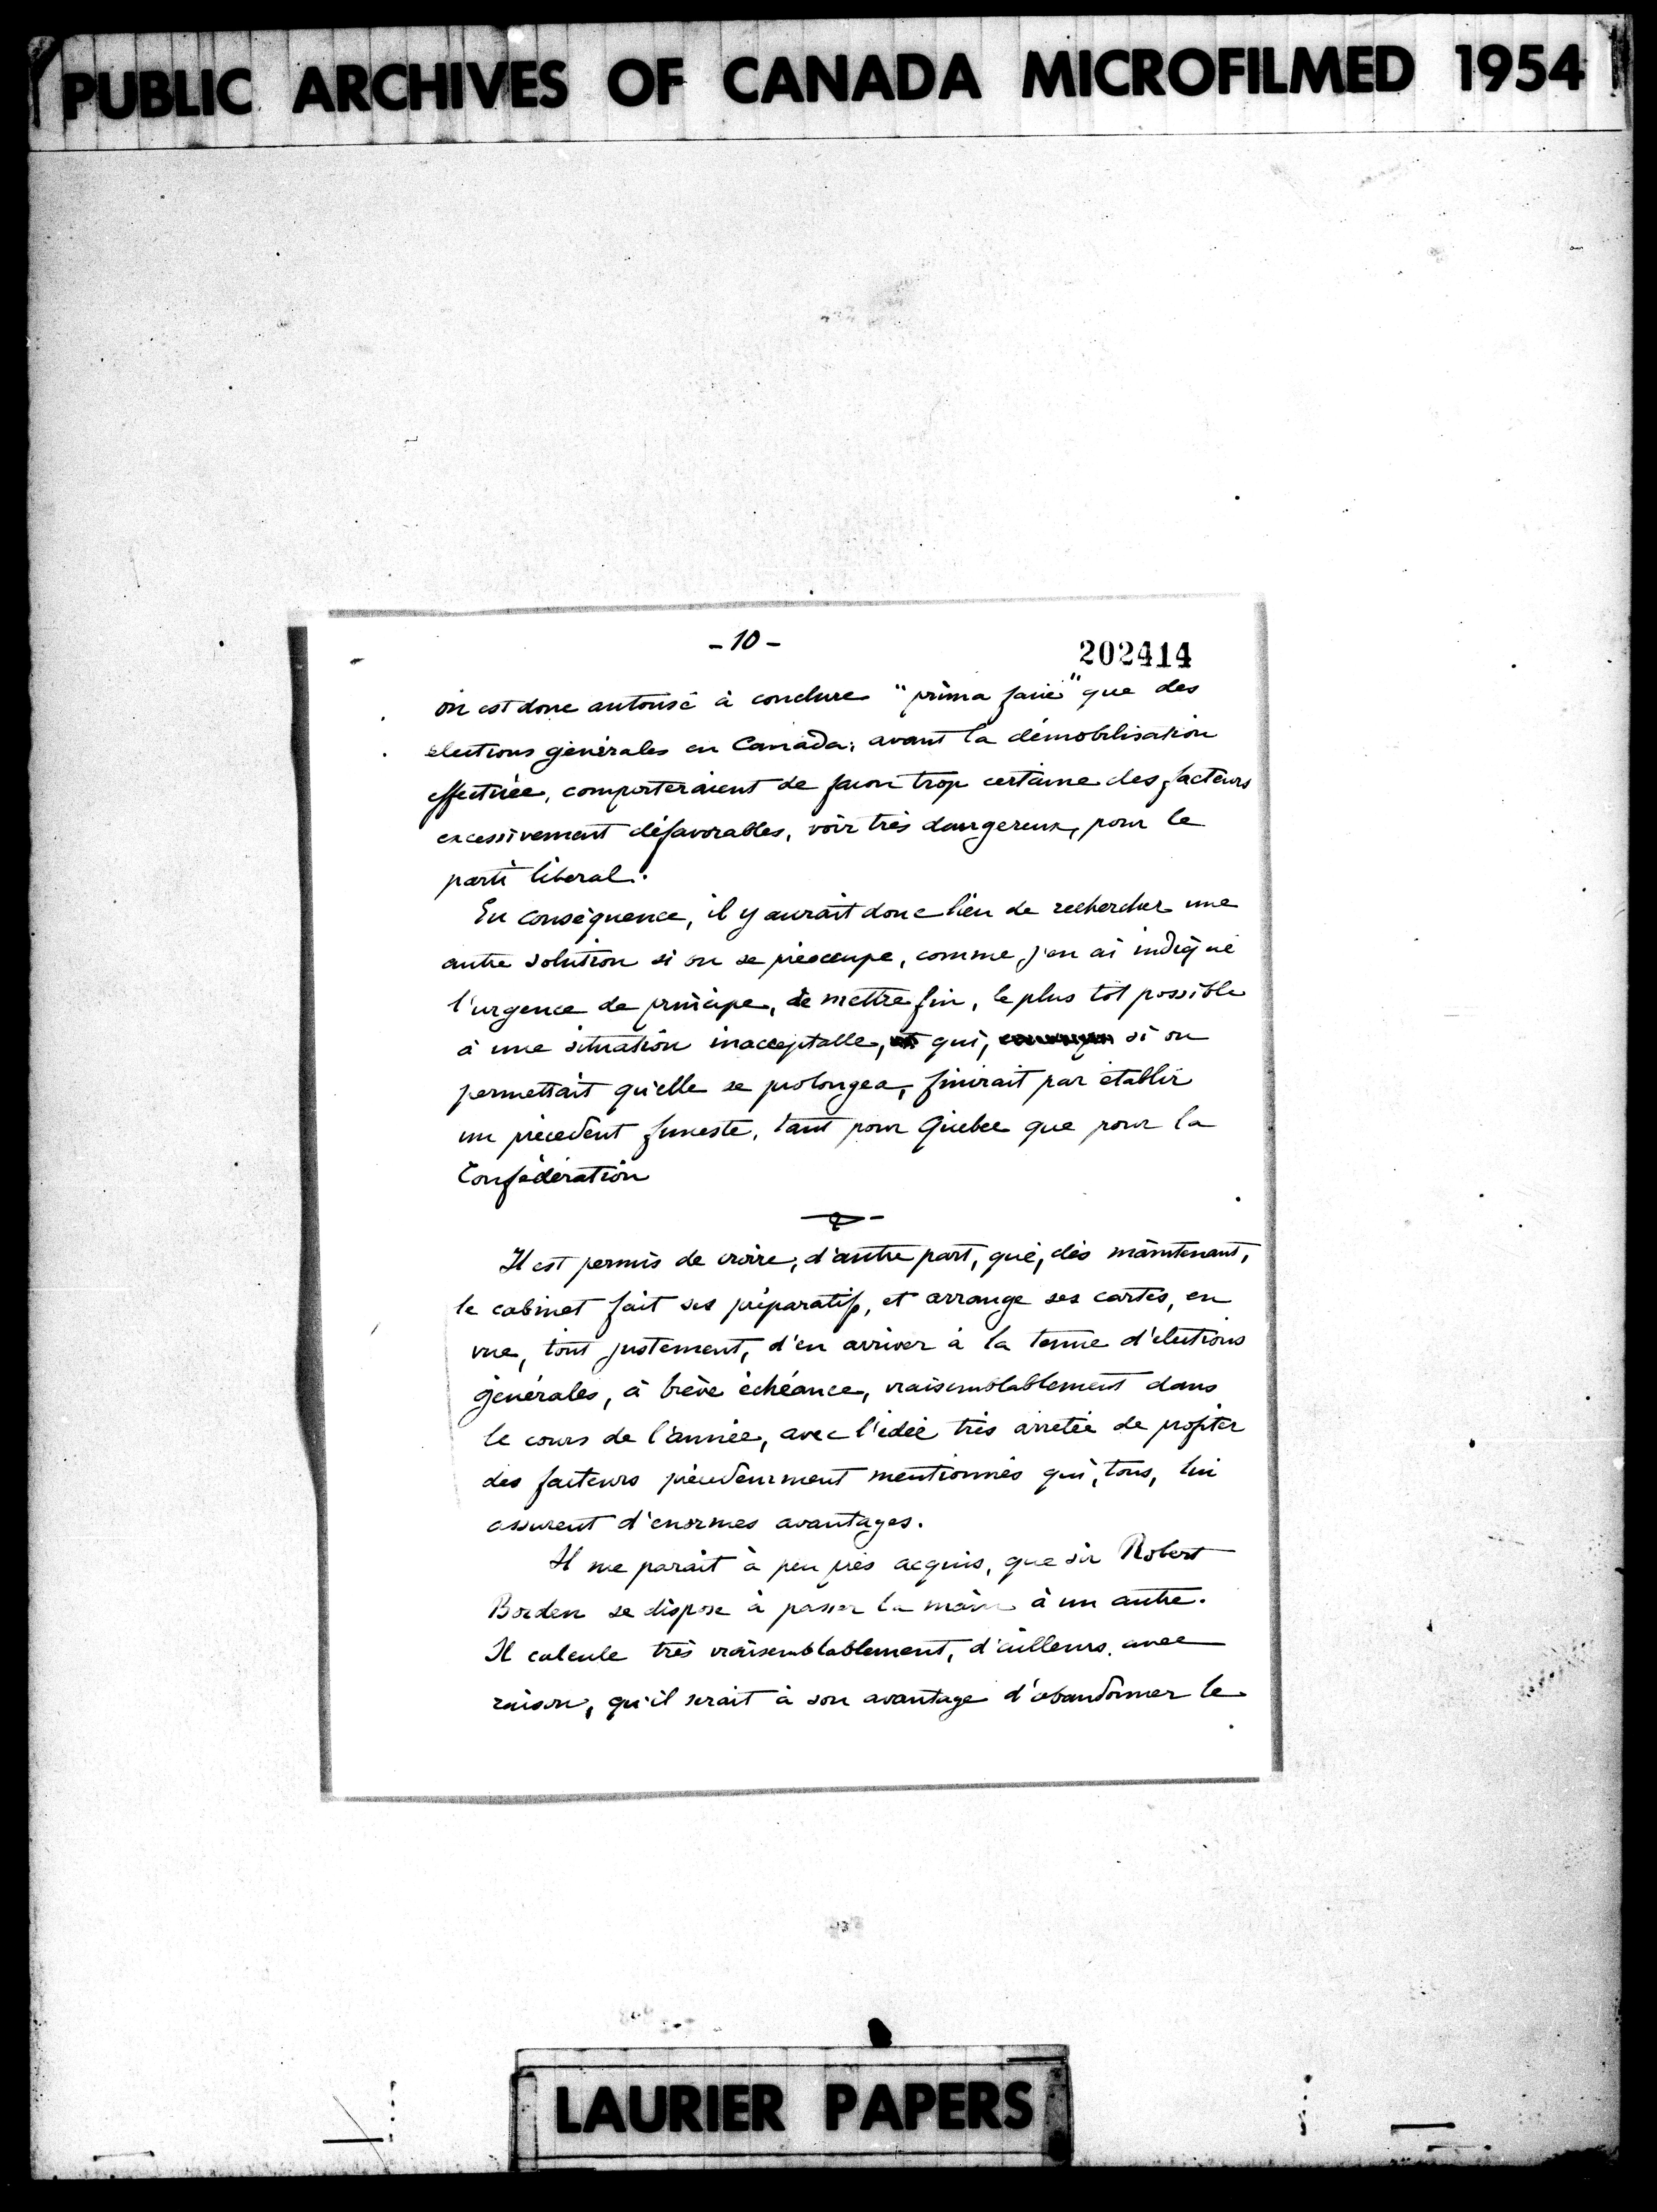 PUBLIC ARCHIVES OF CANADA MICROFILMED 1954
- 10 -
202414
on est donc autorisé à conclure "prima facie" que des
élections générales en Canada, avant la démobilisation
effectuée, comporteraient de facon trop certaine des facteurs
excessivement défavorables, voir très dangereux, pour le
parti libéral.
En conséquence, il y aurait donc lieu de rechercher une
autre solution si on se préoccupe, comme j'en ai indiqué
l'urgence de principe, de mettre fin, le plus tôt possible
à une situation inacceptable, qui, si on
permettait qu'elle se prolongea, finirait par établir
un précédent funeste, tant pour Québec que pour la
Confédération
Il est permis de croire, d'autre part, que, dès maintenant,
le cabinet fait ses préparatifs, et arrange ses cartes, en
vue, tout justement, d'en arriver à la tenue d'élections
générales, à brève échéance, vraisemblablement dans
le cours de l'année, avec l'idée très arretée de profiter
des facteurs précédemment mentionnés qui, tous, lui
assurent d'énormes avantages.
Il me parait à peu près acquis, que sir Robert
Borden se dispose à passer la main à un autre.
Il calcule très vraisemblablement, d'ailleurs, avec
raison, qu'il serait à son avantage d'abandonner le
LAURIER PAPERS